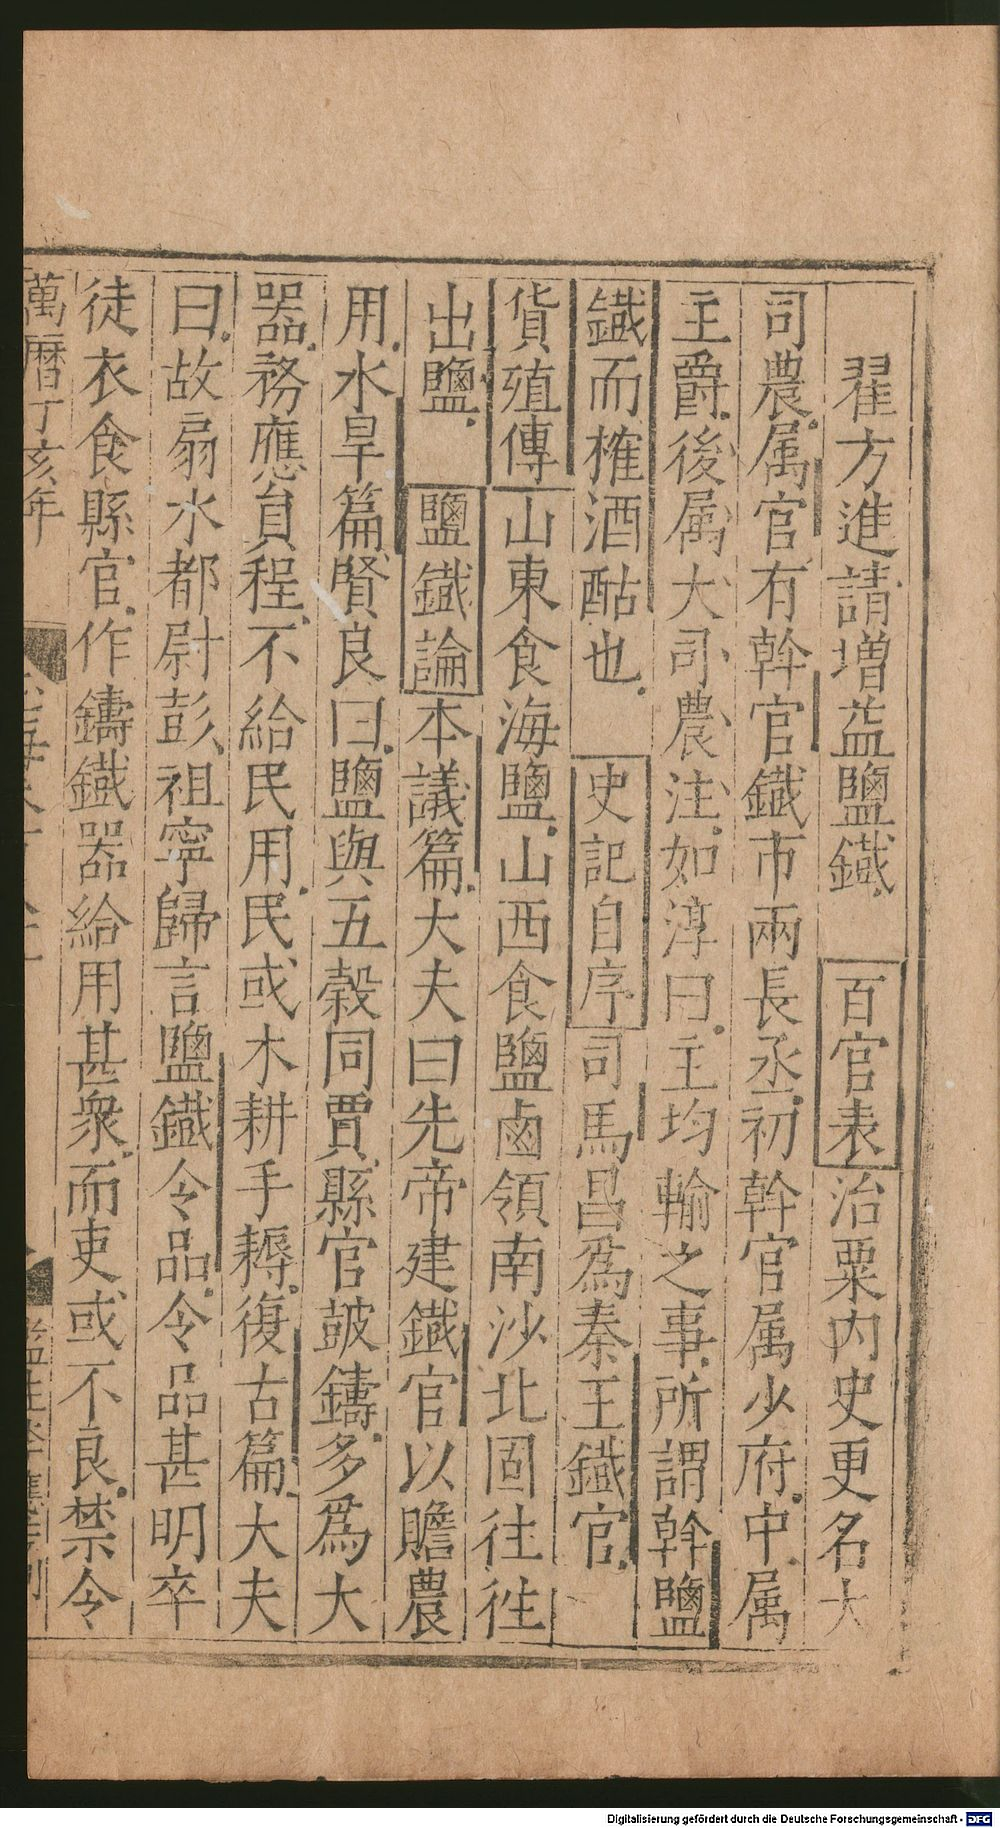 翟方進請增益鹽鐵　百官表治粟內史更名大
司農属官有斡官鐵市兩長丞初斡官属少府中属
主爵後属大司農注如淳曰主均輸之事所謂斡鹽
鐵而榷酒酤也　史記自序司馬昌為秦王鐵官
貨殖傳山東食海鹽山西食鹽鹵領南沙北固往往
出鹽　鹽鐵論本議篇大夫曰先帝建鐵官以贍農
用水旱篇賢良曰鹽與五穀同賈縣官鼓鑄多為大
器務應員程不給民用民或木耕手耨復古篇大夫
曰故扇水都尉彭祖寧歸言鹽鐵令品令品甚明卒
徒衣食縣官作鑄鐵器給用甚衆而吏或不良禁令
萬曆丁亥年
監生李應芳刊
Digitalisierung gefördert durch die Deutsche Forschungsgemeinschaft - DFG